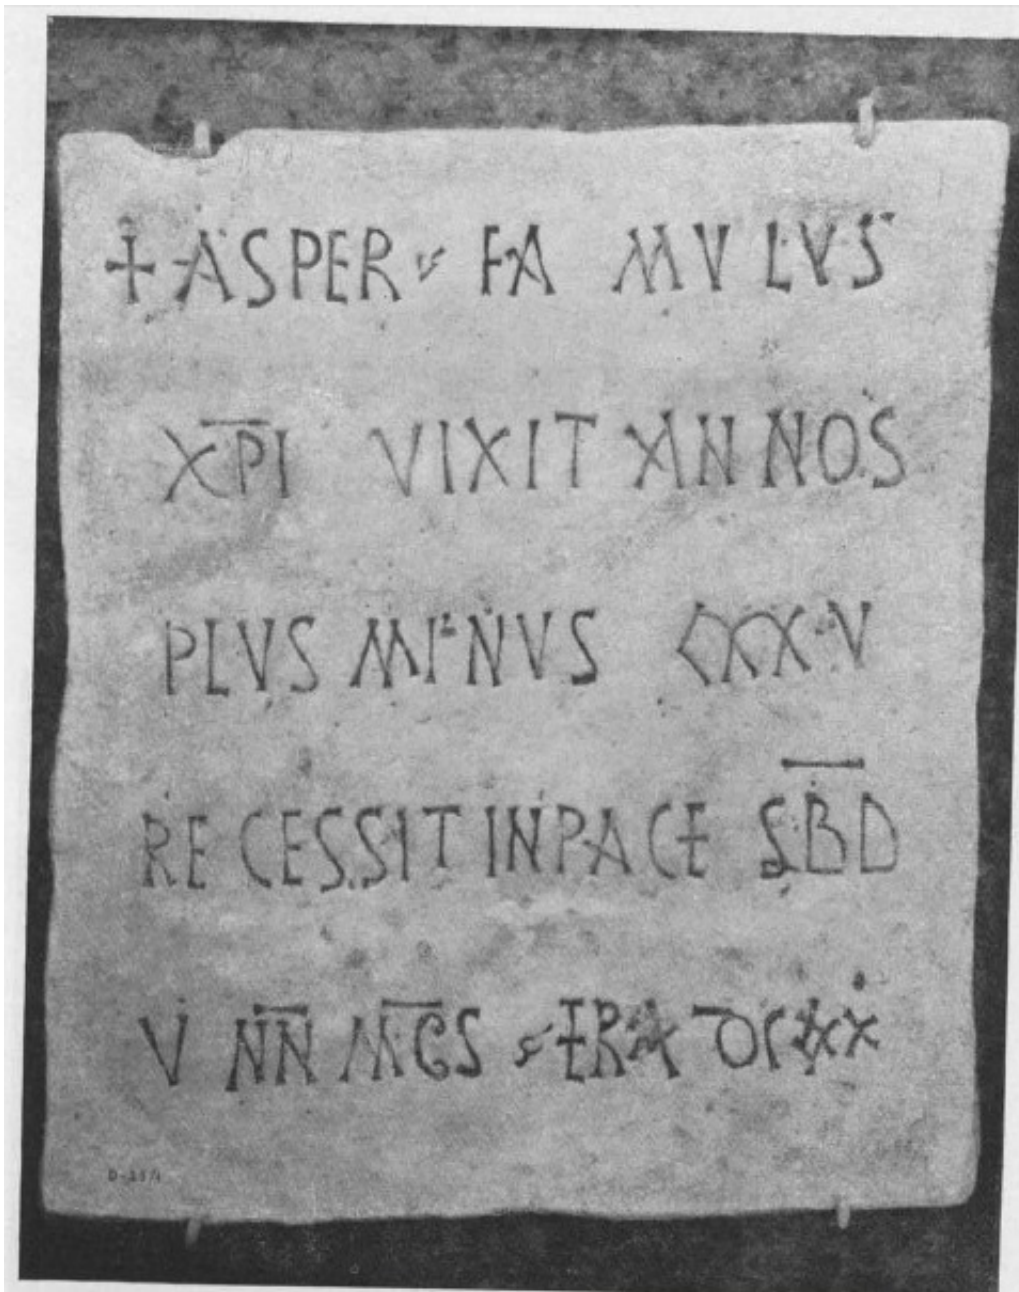 + ASPER FAMULUS
XPI VIXIT ANNOS
PLVS MINVS
RECESSIT IN PACE SBD
V NN MGS ERA